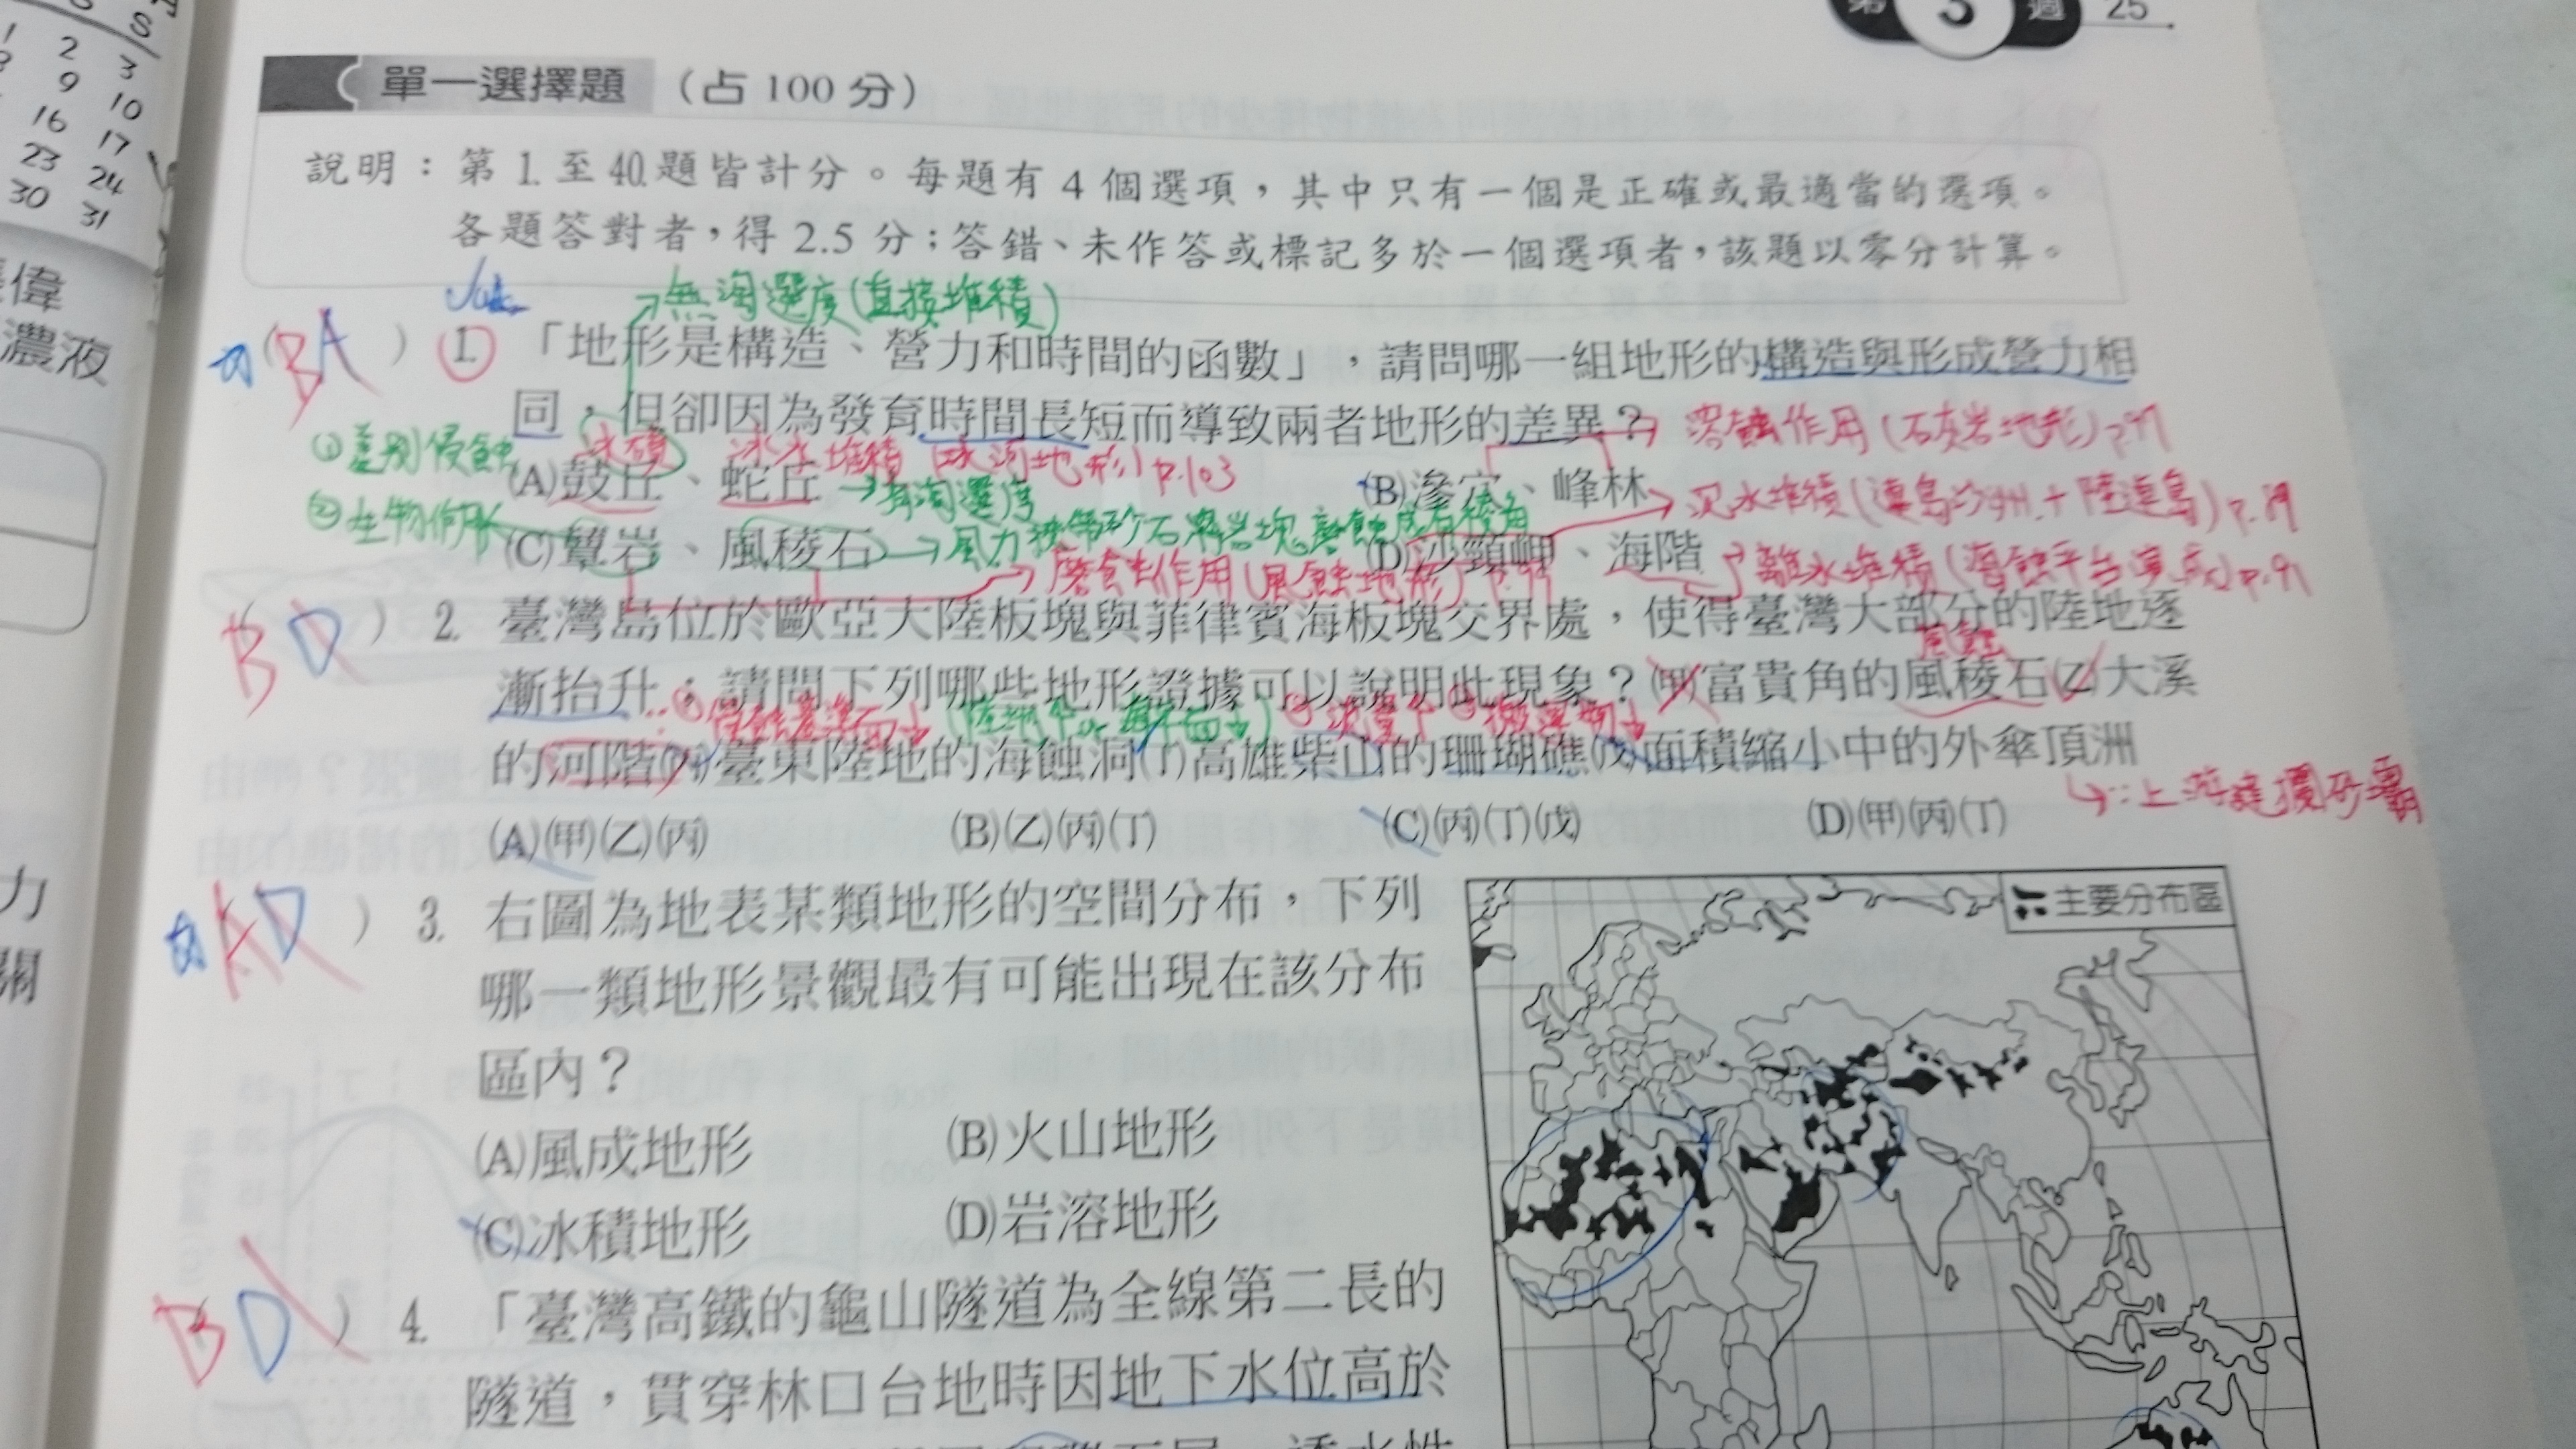 第 3 週 25
S
1 2 3
9 10
16 17
23 24
30 31
偉
濃液
力
關
單一選擇題 (占 100 分)
說明：第 1. 至 40. 題皆計分。每題有 4 個選項，其中只有一個是正確或最適當的選項。
各題答對者，得 2.5 分；答錯、未作答或標記多於一個選項者，該題以零分計算。
無淘選度(直接堆積)
(BA) 1. 「地形是構造、營力和時間的函數」，請問哪一組地形的構造與形成營力相
同，但卻因為發育時間長短而導致兩者地形的差異？
溶蝕作用(石灰岩地形)p.97
①差別侵蝕
冰磧 冰水堆積(冰河地形)p.103
(A)鼓丘、蛇丘 (B)滲穴、峰林
→有淘選度
沉水堆積(連島沙洲+陸連島)p.89
②生物作用
風力挾帶砂石將岩塊磨蝕成有稜角
(C)蕈岩、風稜石 (D)沙頸岬、海階
磨蝕作用(風蝕地形)p.99
離水堆積(海蝕平台)p.91
BD) 2. 臺灣島位於歐亞大陸板塊與菲律賓海板塊交界處，使得臺灣大部分的陸地逐
風蝕
漸抬升；請問下列哪些地形證據可以說明此現象？(甲)富貴角的風稜石(乙)大溪
∵①侵蝕基準面↓(陸地↑or海平面↓)
的河階(丙)臺東陸地的海蝕洞(丁)高雄柴山的珊瑚礁(戊)面積縮小中的外傘頂洲
↳∵上游建攔砂壩
(A)(甲)(乙)(丙) (B)(乙)(丙)(丁) (C)(丙)(丁)(戊) (D)(甲)(丙)(丁)
AD) 3. 右圖為地表某類地形的空間分布，下列
哪一類地形景觀最有可能出現在該分布
區內？
(A)風成地形 (B)火山地形
(C)冰積地形 (D)岩溶地形
主要分布區
BD) 4. 「臺灣高鐵的龜山隧道為全線第二長的
隧道，貫穿林口台地時因地下水位高於